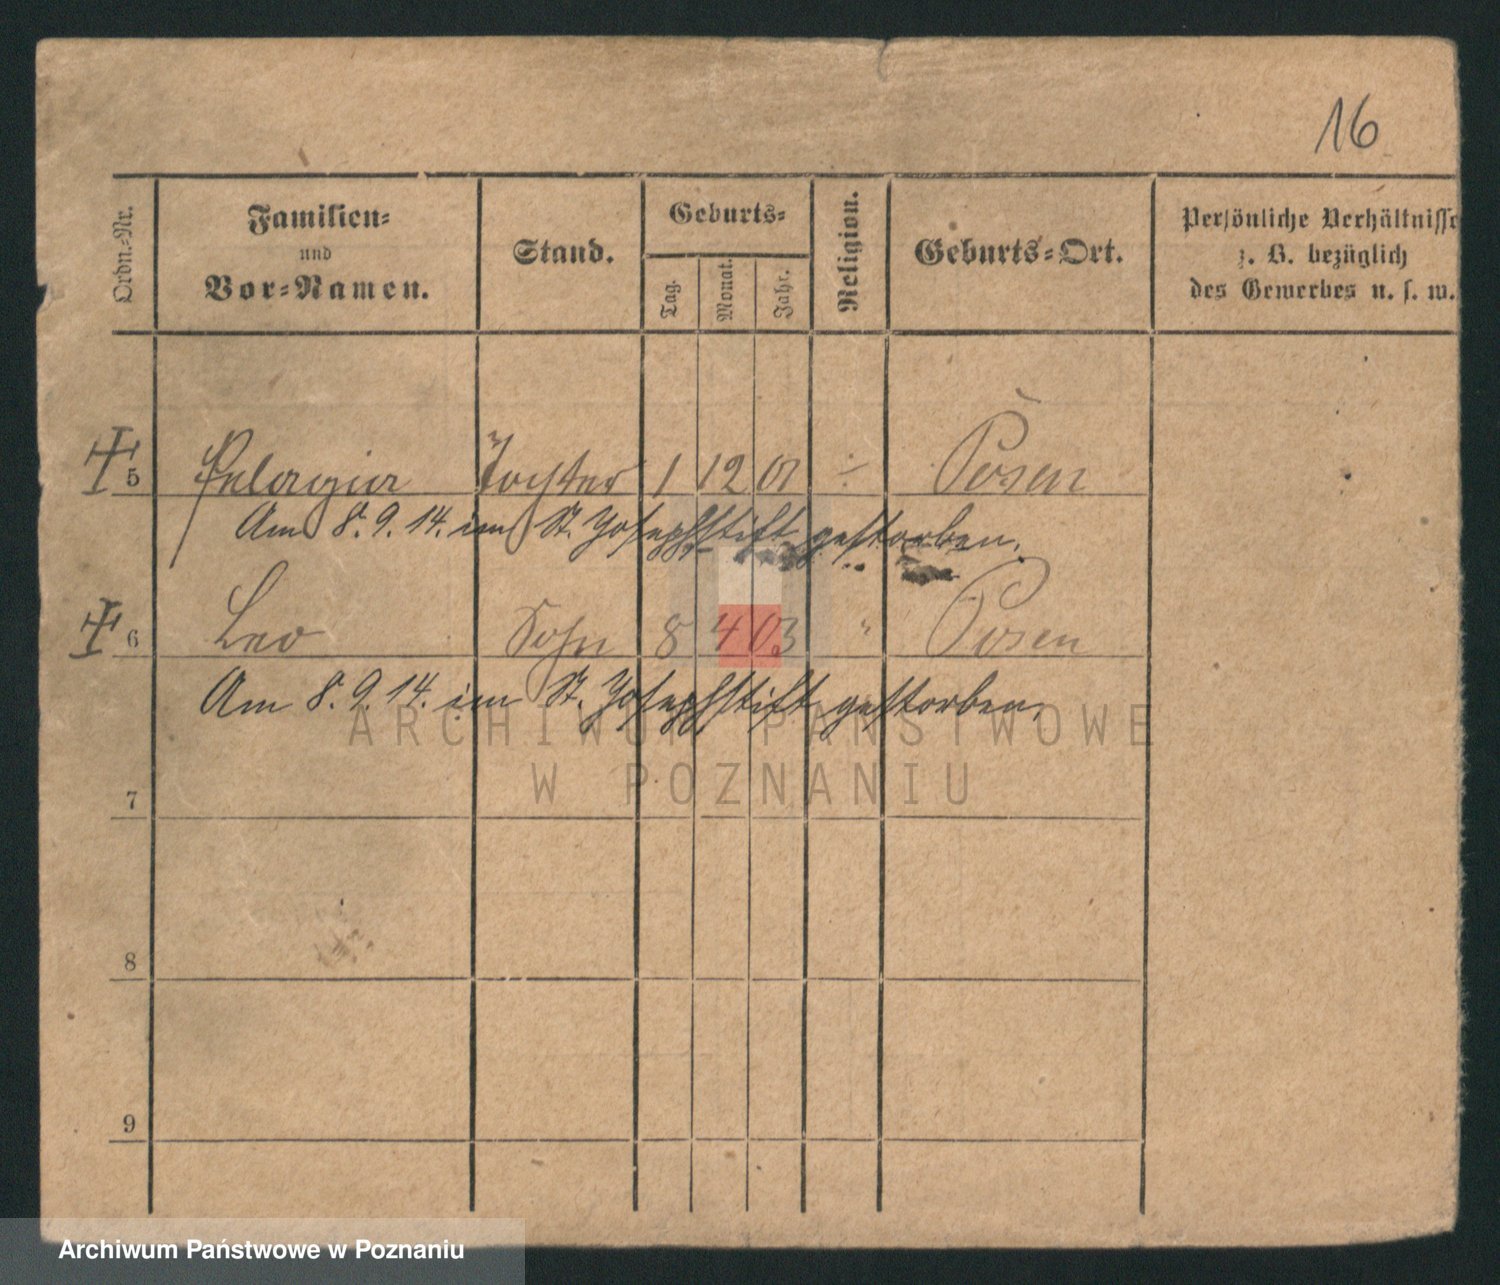 16
Ordn.=Nr. Familien= und Vor=Namen. Stand. Geburts= Tag. Monat. Jahr. Religion. Geburts=Ort. Persönliche Verhältnisse z. B. bezüglich des Gewerbes u. s. w.
5 Pelagia Tochter 1 12 01 ÷ Posen
Am 8. 9. 14. im St. Josephstift gestorben.
6 Leo Sohn 8 4 03 " Posen
Am 8. 9. 14. im St. Josephstift gestorben.
ARCHIWUM PAŃSTWOWE
W POZNANIU
7
8
9
Archiwum Państwowe w Poznaniu